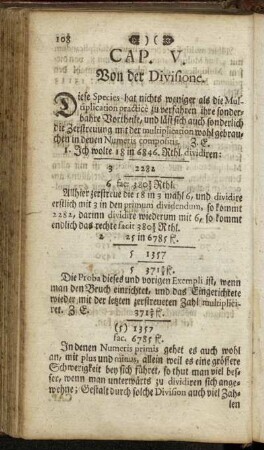 108 )(
CAP. V.
Von der Divisione.
Diese Species hat nichts weniger als die Mul-
tiplication practicè zu verfahren ihre sonder-
bahre Vortheile, und läst sich auch sonderlich
die Zerstreuung mit der multiplication wohl gebrau-
chen in denen Numeris compositis. Z. E.
1. Ich wolte 18 in 6846. Rthl. dividiren:
3 2282
6 fac. 380⅔ Rthl.
Allhier zerstreue die 18 in 3 mahl 6, und dividire
erstlich mit 3 in den primum dividendum, so kommt
2282, darinn dividire wiederum mit 6, so kommt
endlich das rechte facit 380⅔ Rthl.
2. 25 in 6785 fl.
5 1357
5 271⅖ fl.
Die Proba dieses und vorigen Exempli ist, wenn
man den Bruch einrichtet, und das Eingerichtete
wieder mit der letzten zerstreueten Zahl multiplici-
ret. Z. E.
(5) 1357
fac. 6785 fl.
In denen Numeris primis gehet es auch wohl
an, mit plus und minus, allein weil es eine grössere
Schwerigkeit bey sich führet, so thut man viel bes-
ser, wenn man unterwärts zu dividiren sich ange-
wehne; Gestalt durch solche Division auch viel Zah-
len